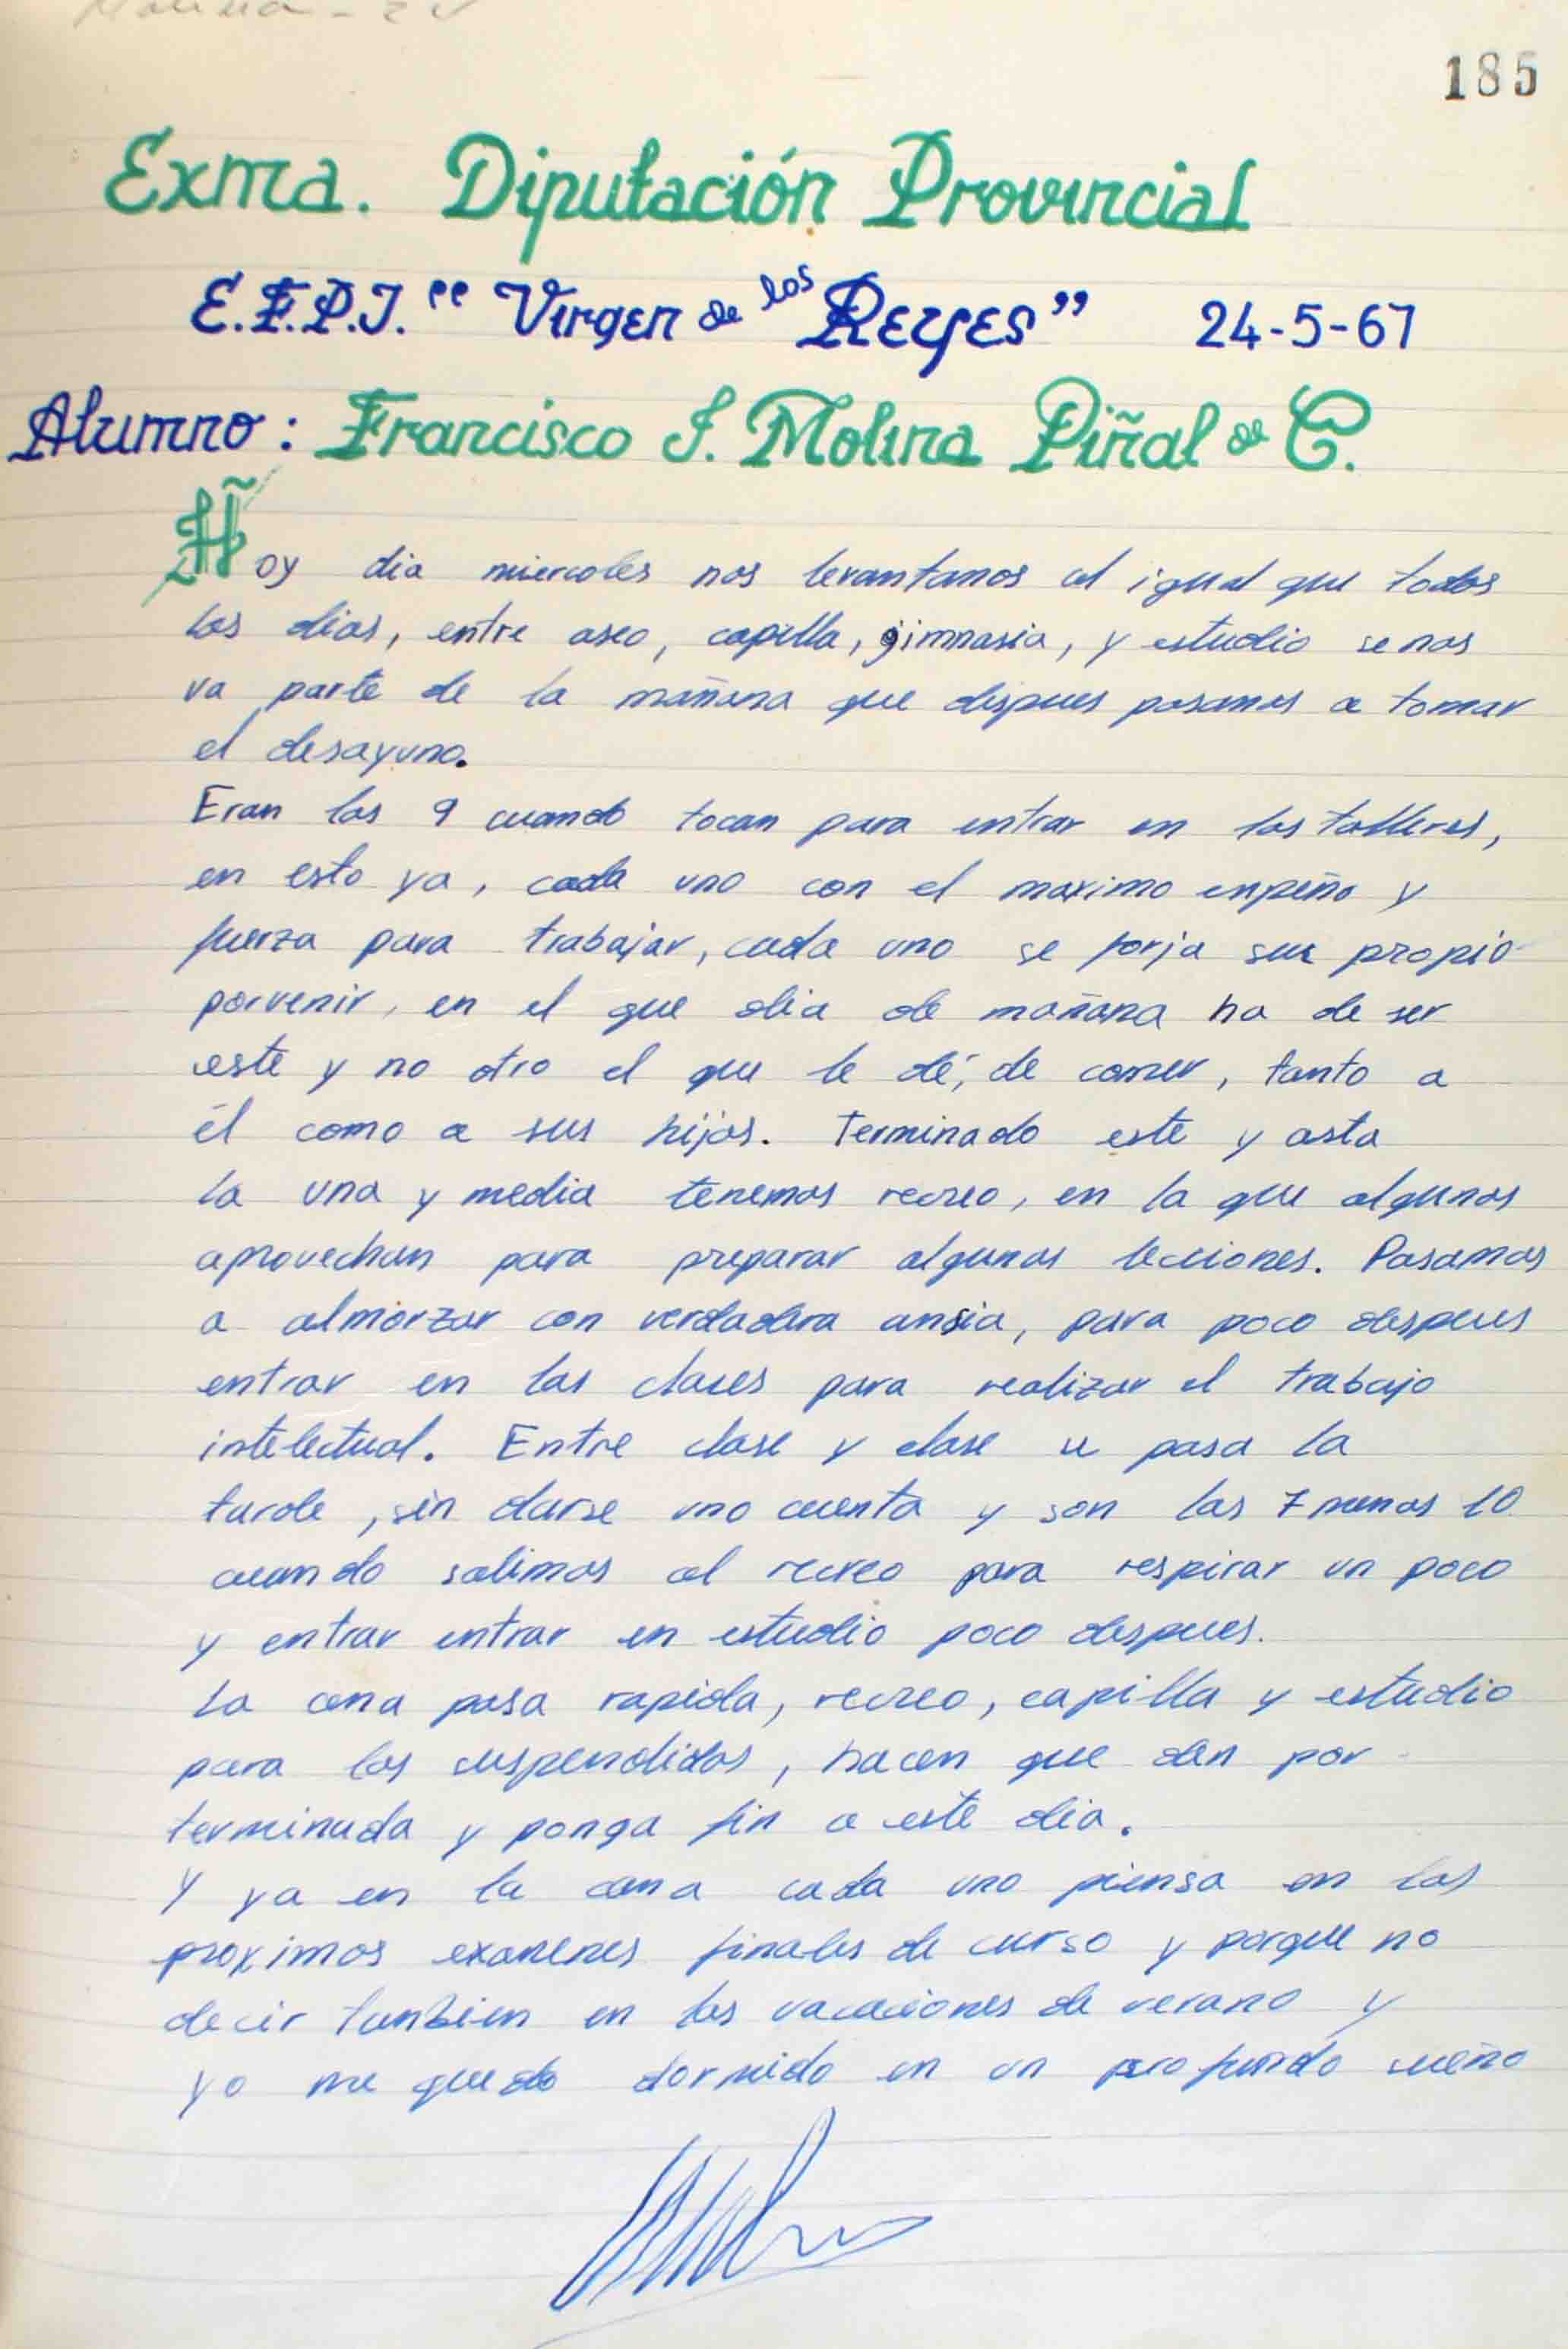 185
Exma. Diputación Provincial
E.F.P.I. "Virgen de los Reyes" 24-5-67
Alumno: Francisco J. Molina Piñal de C.
Hoy dia miercoles nos levantamos al igual que todos
los dias, entre aseo, capilla, gimnasia, y estudio se nos
va parte de la mañana que despues pasamos a tomar
el desayuno.
Eran las 9 cuando tocan para entrar en los talleres,
en esto ya, cada uno con el maximo enpeño y
fuerza para trabajar, cada uno se forja sus propio
porvenir, en el que dia de mañana ha de ser
este y no otro el que le dé, de comer, tanto a
él como a sus hijos. Terminado este y asta
la una y media tenemos recreo, en la que algunos
aprovechan para preparar algunas lecciones. Pasamos
a almorzar con verdadera ansia, para poco despues
entrar en las clases para realizar el trabajo
intelectual. Entre clase y clase se pasa la
tarde, sin darse uno cuenta y son las 7 menos 10
cuando salimos al recreo para respirar un poco
y entrar entrar en estudio poco despues.
La cena pasa rapida, recreo, capilla y estudio
para los suspendidos, hacen que den por
terminada y ponga fin a este dia.
Y ya en la cama cada uno piensa en los
proximos examenes finales de curso y porque no
decir tanbien en las vacaciones de verano y
yo me quedo dormido en un profundo sueño